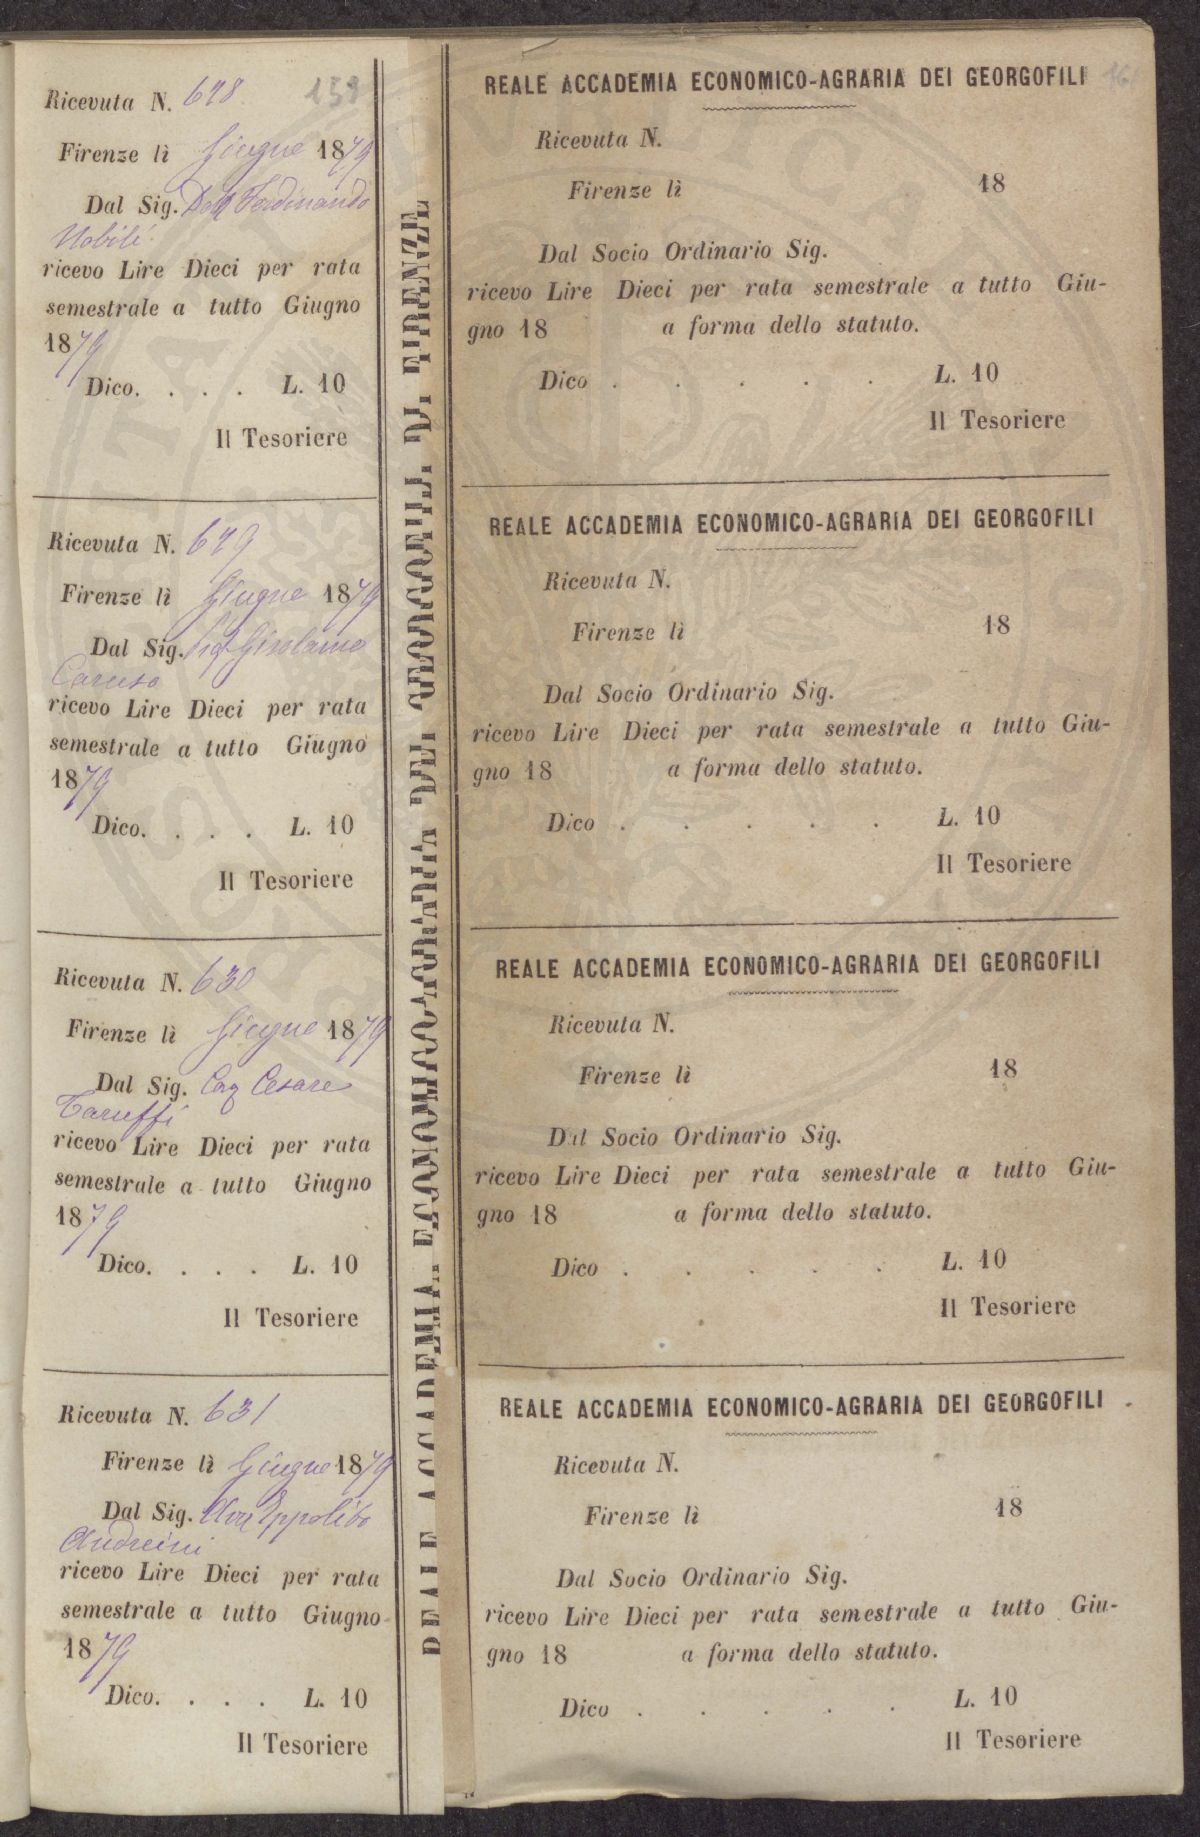 Ricevuta N. 628
159
Firenze lì Giugno 1879
Dal Sig. Dott Ferdinando
Nobili
ricevo Lire Dieci per rata
semestrale a tutto Giugno
1879
Dico. . . . L. 10
Il Tesoriere
Ricevuta N. 629
Firenze lì Giugno 1879
Dal Sig. Girolamo
Caruso
ricevo Lire Dieci per rata
semestrale a tutto Giugno
1879
Dico. . . . L. 10
Il Tesoriere
Ricevuta N. 630
Firenze lì Giugno 1879
Dal Sig. Cav Cesare
Taruffi
ricevo Lire Dieci per rata
semestrale a tutto Giugno
1879
Dico. . . . L. 10
Il Tesoriere
Ricevuta N. 631
Firenze lì Giugno 1879
Dal Sig. Avv Ippolito
Andreini
ricevo Lire Dieci per rata
semestrale a tutto Giugno
1879
Dico. . . . L. 10
Il Tesoriere
REALE ACCADEMIA ECONOMICO-AGRARIA DEI GEORGOFILI DI FIRENZE
REALE ACCADEMIA ECONOMICO-AGRARIA DEI GEORGOFILI
Ricevuta N.
Firenze lì 18
Dal Socio Ordinario Sig.
ricevo Lire Dieci per rata semestrale a tutto Giu-
gno 18 a forma dello statuto.
Dico . . . . . L. 10
Il Tesoriere
REALE ACCADEMIA ECONOMICO-AGRARIA DEI GEORGOFILI
Ricevuta N.
Firenze lì 18
Dal Socio Ordinario Sig.
ricevo Lire Dieci per rata semestrale a tutto Giu-
gno 18 a forma dello statuto.
Dico . . . . . L. 10
Il Tesoriere
REALE ACCADEMIA ECONOMICO-AGRARIA DEI GEORGOFILI
Ricevuta N.
Firenze lì 18
Dal Socio Ordinario Sig.
ricevo Lire Dieci per rata semestrale a tutto Giu-
gno 18 a forma dello statuto.
Dico . . . . . L. 10
Il Tesoriere
REALE ACCADEMIA ECONOMICO-AGRARIA DEI GEORGOFILI
Ricevuta N.
Firenze lì 18
Dal Socio Ordinario Sig.
ricevo Lire Dieci per rata semestrale a tutto Giu-
gno 18 a forma dello statuto.
Dico . . . . . L. 10
Il Tesoriere